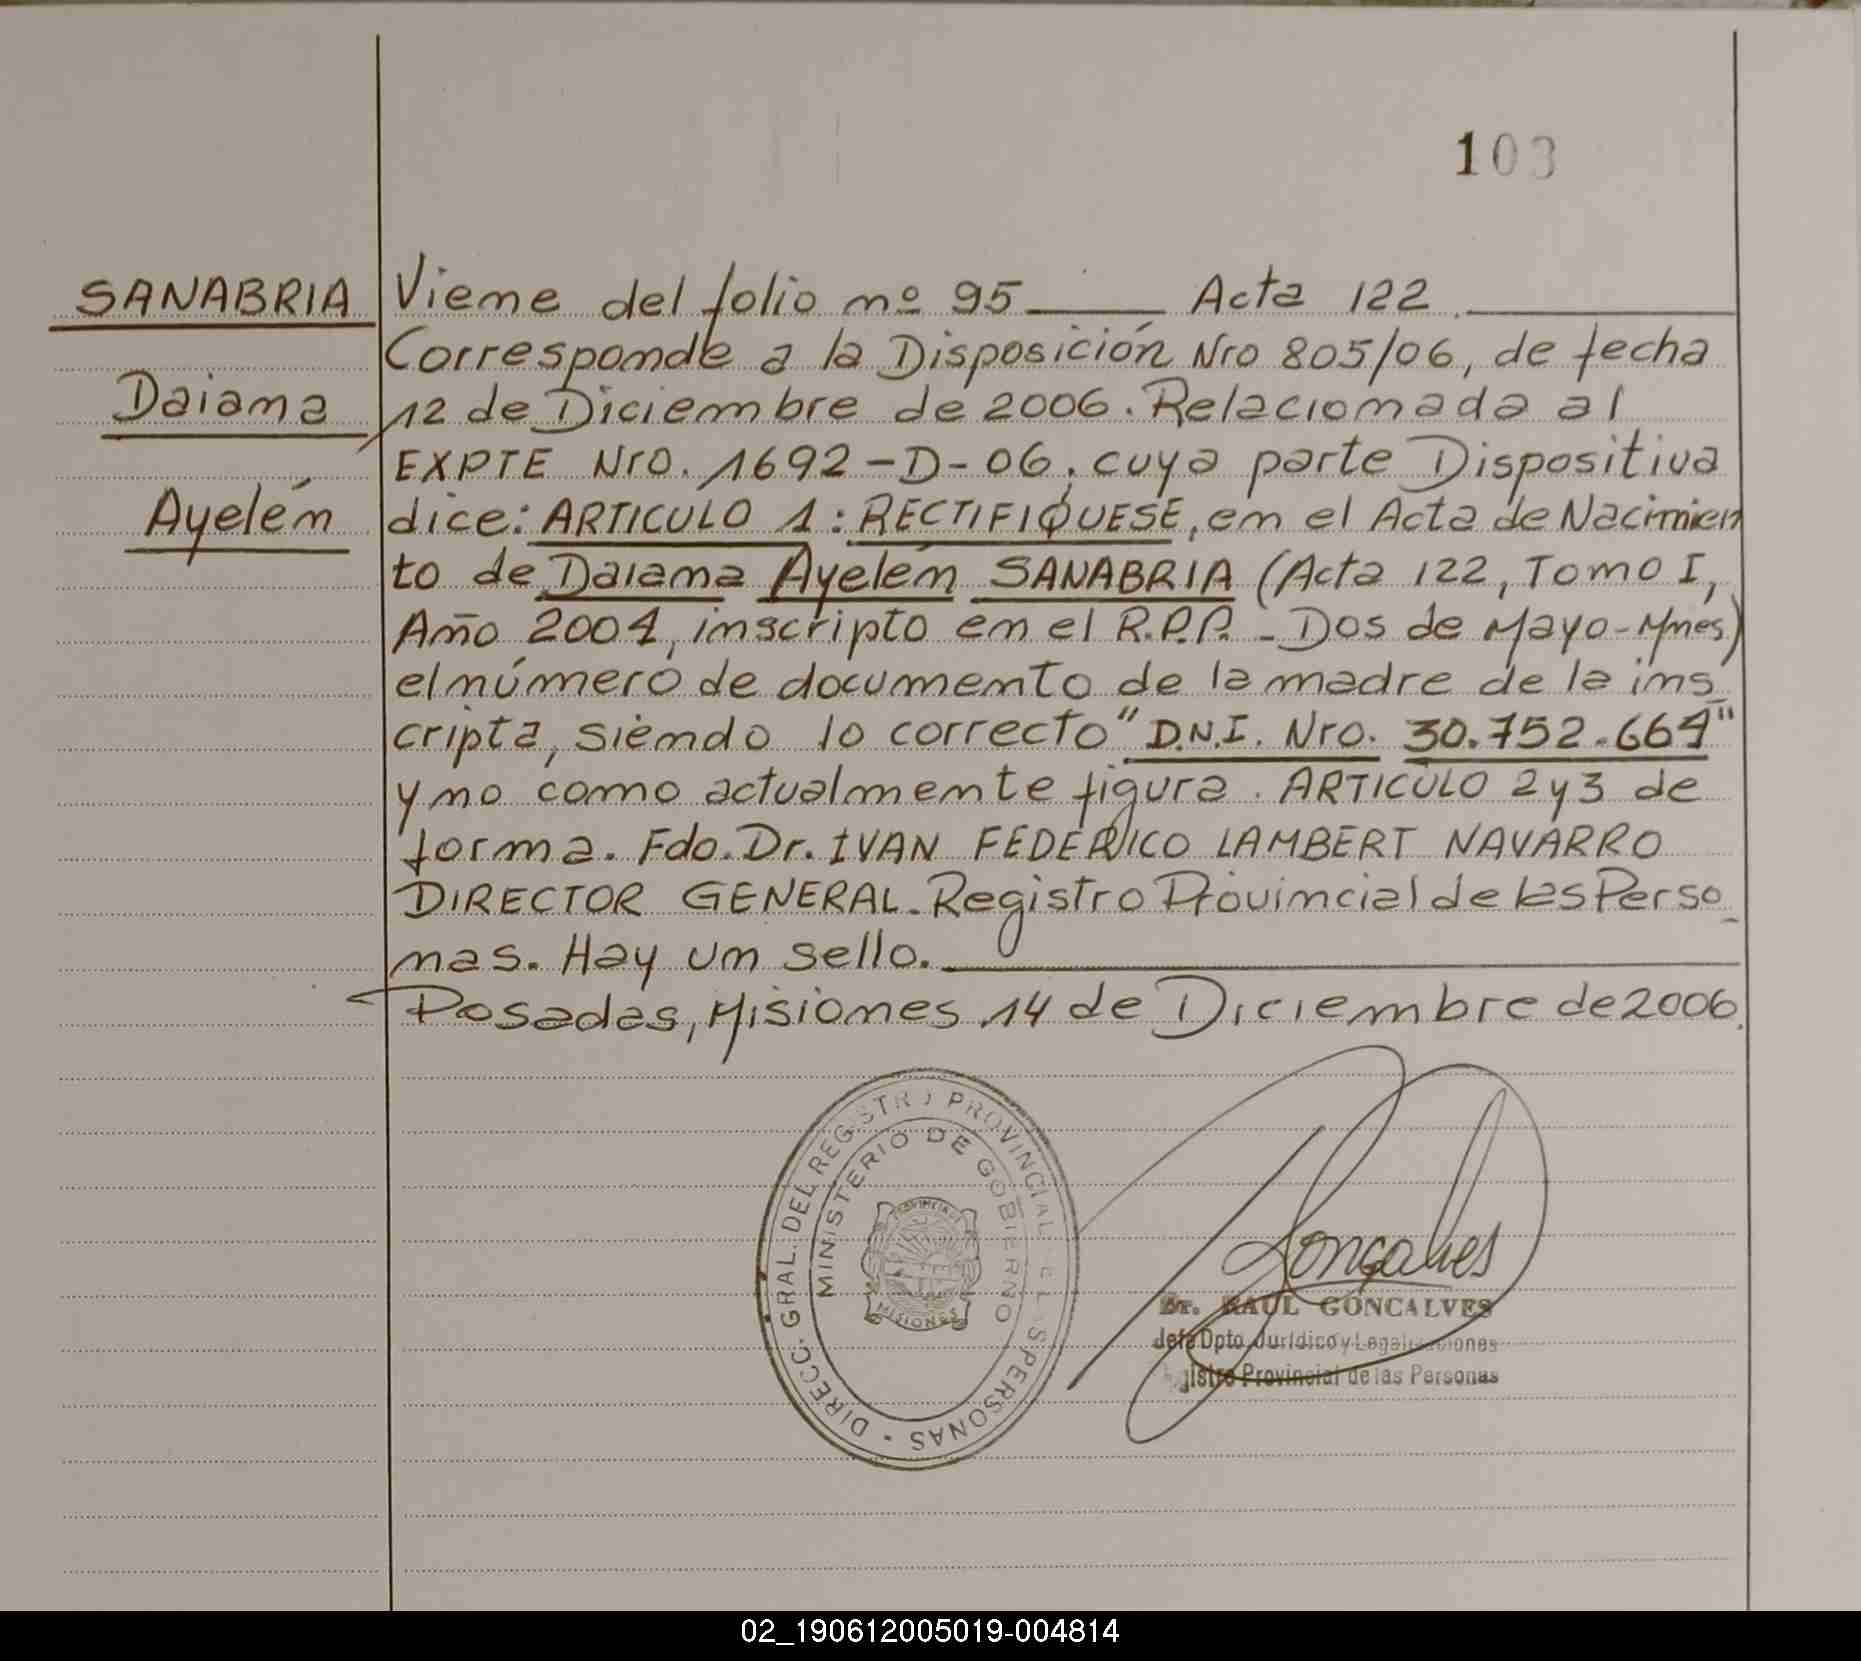 103
SANABRIA
Daiana
Ayelén
Viene del folio nº 95 Acta 122
Corresponde a la Disposición Nro 805/06, de fecha
12 de Diciembre de 2006. Relacionada al
EXPTE Nro. 1692-D-06, cuya parte Dispositiva
dice: ARTICULO 1: RECTIFIQUESE, en el Acta de Nacimien
to de Daiana Ayelén SANABRIA (Acta 122, Tomo I,
Año 2004, inscripto en el R.P.P. - Dos de Mayo-Mnes)
el número de documento de la madre de la ins
cripta, siendo lo correcto "D.N.I. Nro. 30.752.664"
y no como actualmente figura. ARTICULO 2 y 3 de
forma. Fdo. Dr. IVAN FEDERICO LAMBERT NAVARRO
DIRECTOR GENERAL. Registro Provincial de las Perso
nas. Hay un sello.
Posadas, Misiones 14 de Diciembre de 2006.
DIRECC. GRAL. DEL REGISTRO PROVINCIAL DE LAS PERSONAS
MINISTERIO DE GOBIERNO
PROVINCIA
MISIONES
Gonçalves
Dr. RAUL GONCALVES
Jefe Dpto. Jurídico y Legalizaciones
Registro Provincial de las Personas
02_190612005019-004814